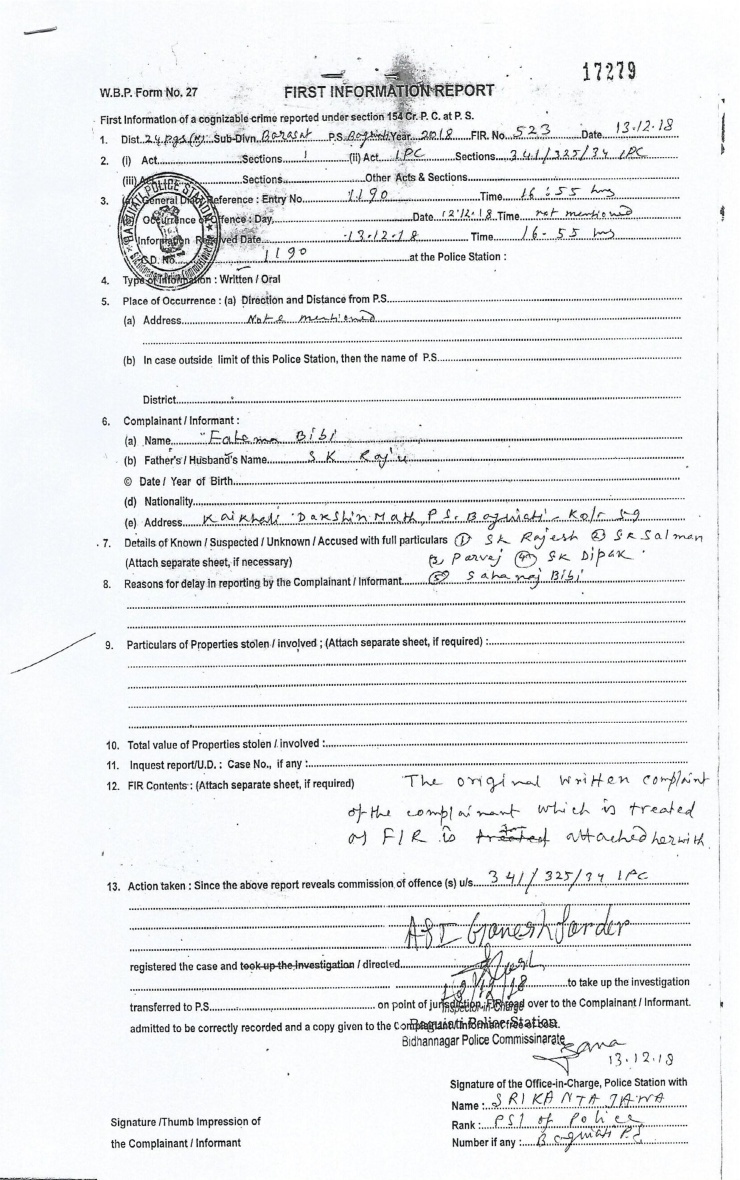 17279
W.B.P. Form No. 27
FIRST INFORMATION REPORT
First Information of a cognizable crime reported under section 154 Cr. P. C. at P. S.
1. Dist. 24 pgs (N) Sub-Divn. Barasat P.S. Baguiati Year 2018 FIR. No. 523 Date 13.12.18
2. (i) Act Sections (ii) Act IPC Sections 341/325/34 IPC
(iii) Act Sections Other Acts & Sections
3. (a) General Diary Reference : Entry No. 1190 Time 16:55 hrs
Occurrence of Offence : Day, Date 12.12.18 Time not mentioned
Information Received Date 13.12.18 Time 16-55 hrs
G.D. No. 1190 at the Police Station :
BAGUIATI POLICE STATION
4. Type of Information : Written / Oral
5. Place of Occurrence : (a) Direction and Distance from P.S.
(a) Address Note mentioned
(b) In case outside limit of this Police Station, then the name of P.S.
District
6. Complainant / Informant :
(a) Name Fatema Bibi
(b) Father's / Husband's Name SK Raju
© Date / Year of Birth
(d) Nationality
(e) Address Kaikhali Dakshin Math, P.S. Baguiati - Kol-59
7. Details of Known / Suspected / Unknown / Accused with full particulars ① SK Rajesh ② SK Salman
(Attach separate sheet, if necessary) ③ Parvej ④ SK Dipak
8. Reasons for delay in reporting by the Complainant / Informant ⑤ Sahanaj Bibi
9. Particulars of Properties stolen / involved ; (Attach separate sheet, if required) :
10. Total value of Properties stolen / involved :
11. Inquest report/U.D. : Case No., if any :
12. FIR Contents : (Attach separate sheet, if required) The original written complaint
of the complainant which is treated
as FIR is treated attached herwith.
13. Action taken : Since the above report reveals commission of offence (s) u/s. 341/325/34 IPC
ASI Ganesh Sarder
registered the case and took up the investigation / directed
13/12/18 to take up the investigation
Inspector-in-Charge
transferred to P.S. on point of jurisdiction. FIR read over to the Complainant / Informant.
admitted to be correctly recorded and a copy given to the Complainant/Informant free of cost.
Baguiati Police Station
Bidhannagar Police Commissinarate
Jana
13.12.18
Signature of the Office-in-Charge, Police Station with
Name : SRIKANTA JANA
Rank : PSI of Police
Number if any : Baguiati P.S
Signature /Thumb Impression of
the Complainant / Informant